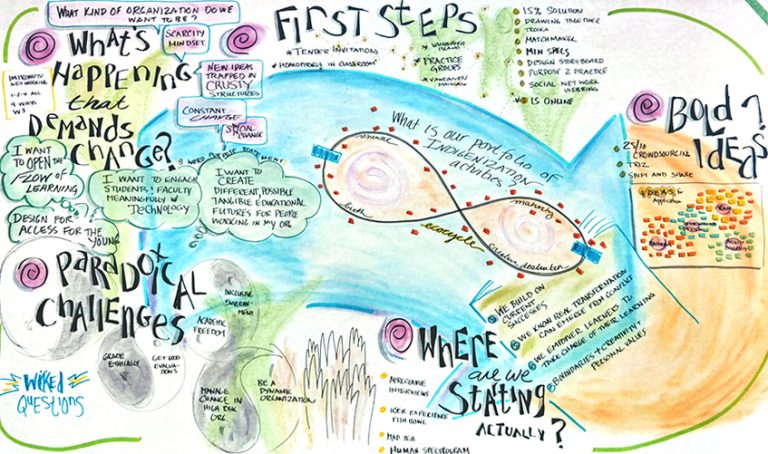 WHAT KIND OF ORGANIZATION DO WE
WANT TO BE?
WHAT'S
HAPPENING
that
DEMANDS
CHANGE?
SCARCITY
MINDSET
NEW IDEAS
TRAPPED IN
CRUSTY
STRUCTURES
CONSTANT
CHANGE
CHANGE
IMPROMPTU
NETWORKING
1-2-4 ALL
9 WAYS
I WANT
TO OPEN THE
FLOW OF
LEARNING
DESIGN FOR
ACCESS FOR THE
YOUNG
I WANT TO ENGAGE
STUDENTS & FACULTY
MEANINGFULLY W/
TECHNOLOGY
I WANT TO
CREATE
DIFFERENT, POSSIBLE
TANGIBLE EDUCATIONAL
FUTURES FOR PEOPLE
WORKING IN MY ORG
FIRST STEPS
* TENDER INVITATIONS
IN CLASSROOM
* VANCOUVER
ISLAND
* PRACTICE
GROUPS
* VANCOUVER
15% SOLUTION
DRAWING TOGETHER
TROIKA
MATCHMAKER
MIN SPECS
DESIGN STORYBOARD
PURPOSE 2 PRACTICE
SOCIAL NETWORK
WEBBING
IS ONLINE
BOLD
IDEAS
?
25/10
CROWDSOURCING
TRIZ
SHIFT AND SHARE
IDEAS &
Application
What is our portfolio of
INDIGENIZATION
activities?
renewal
birth
maturity
creative destruction
ecocycle
WE BUILD ON
CURRENT
SUCCESSES
WE KNOW REAL TRANSFORMATION
CAN EMERGE FROM CONFLICT
WE EMPOWER LEARNERS TO
TAKE CHARGE OF THEIR LEARNING
BOUNDARIES + CREATIVITY
PERSONAL VALUES
PARADOXICAL
CHALLENGES
INCLUSIVE
ENVIRON-
MENT
ACADEMIC
FREEDOM
GRADE
ETHICALLY
GET GOOD
EVALUA-
TIONS
MANAGE
CHANGE IN
HIGH RISK
ORG.
BE A
DYNAMIC
ORGANIZATION
WICKED
QUESTIONS
WHERE
are we
STARTING
ACTUALLY?
APPRECIATIVE
INTERVIEWS
USER EXPERIENCE
FISH BOWL
MAD TEA
HUMAN SPECTROGRAM